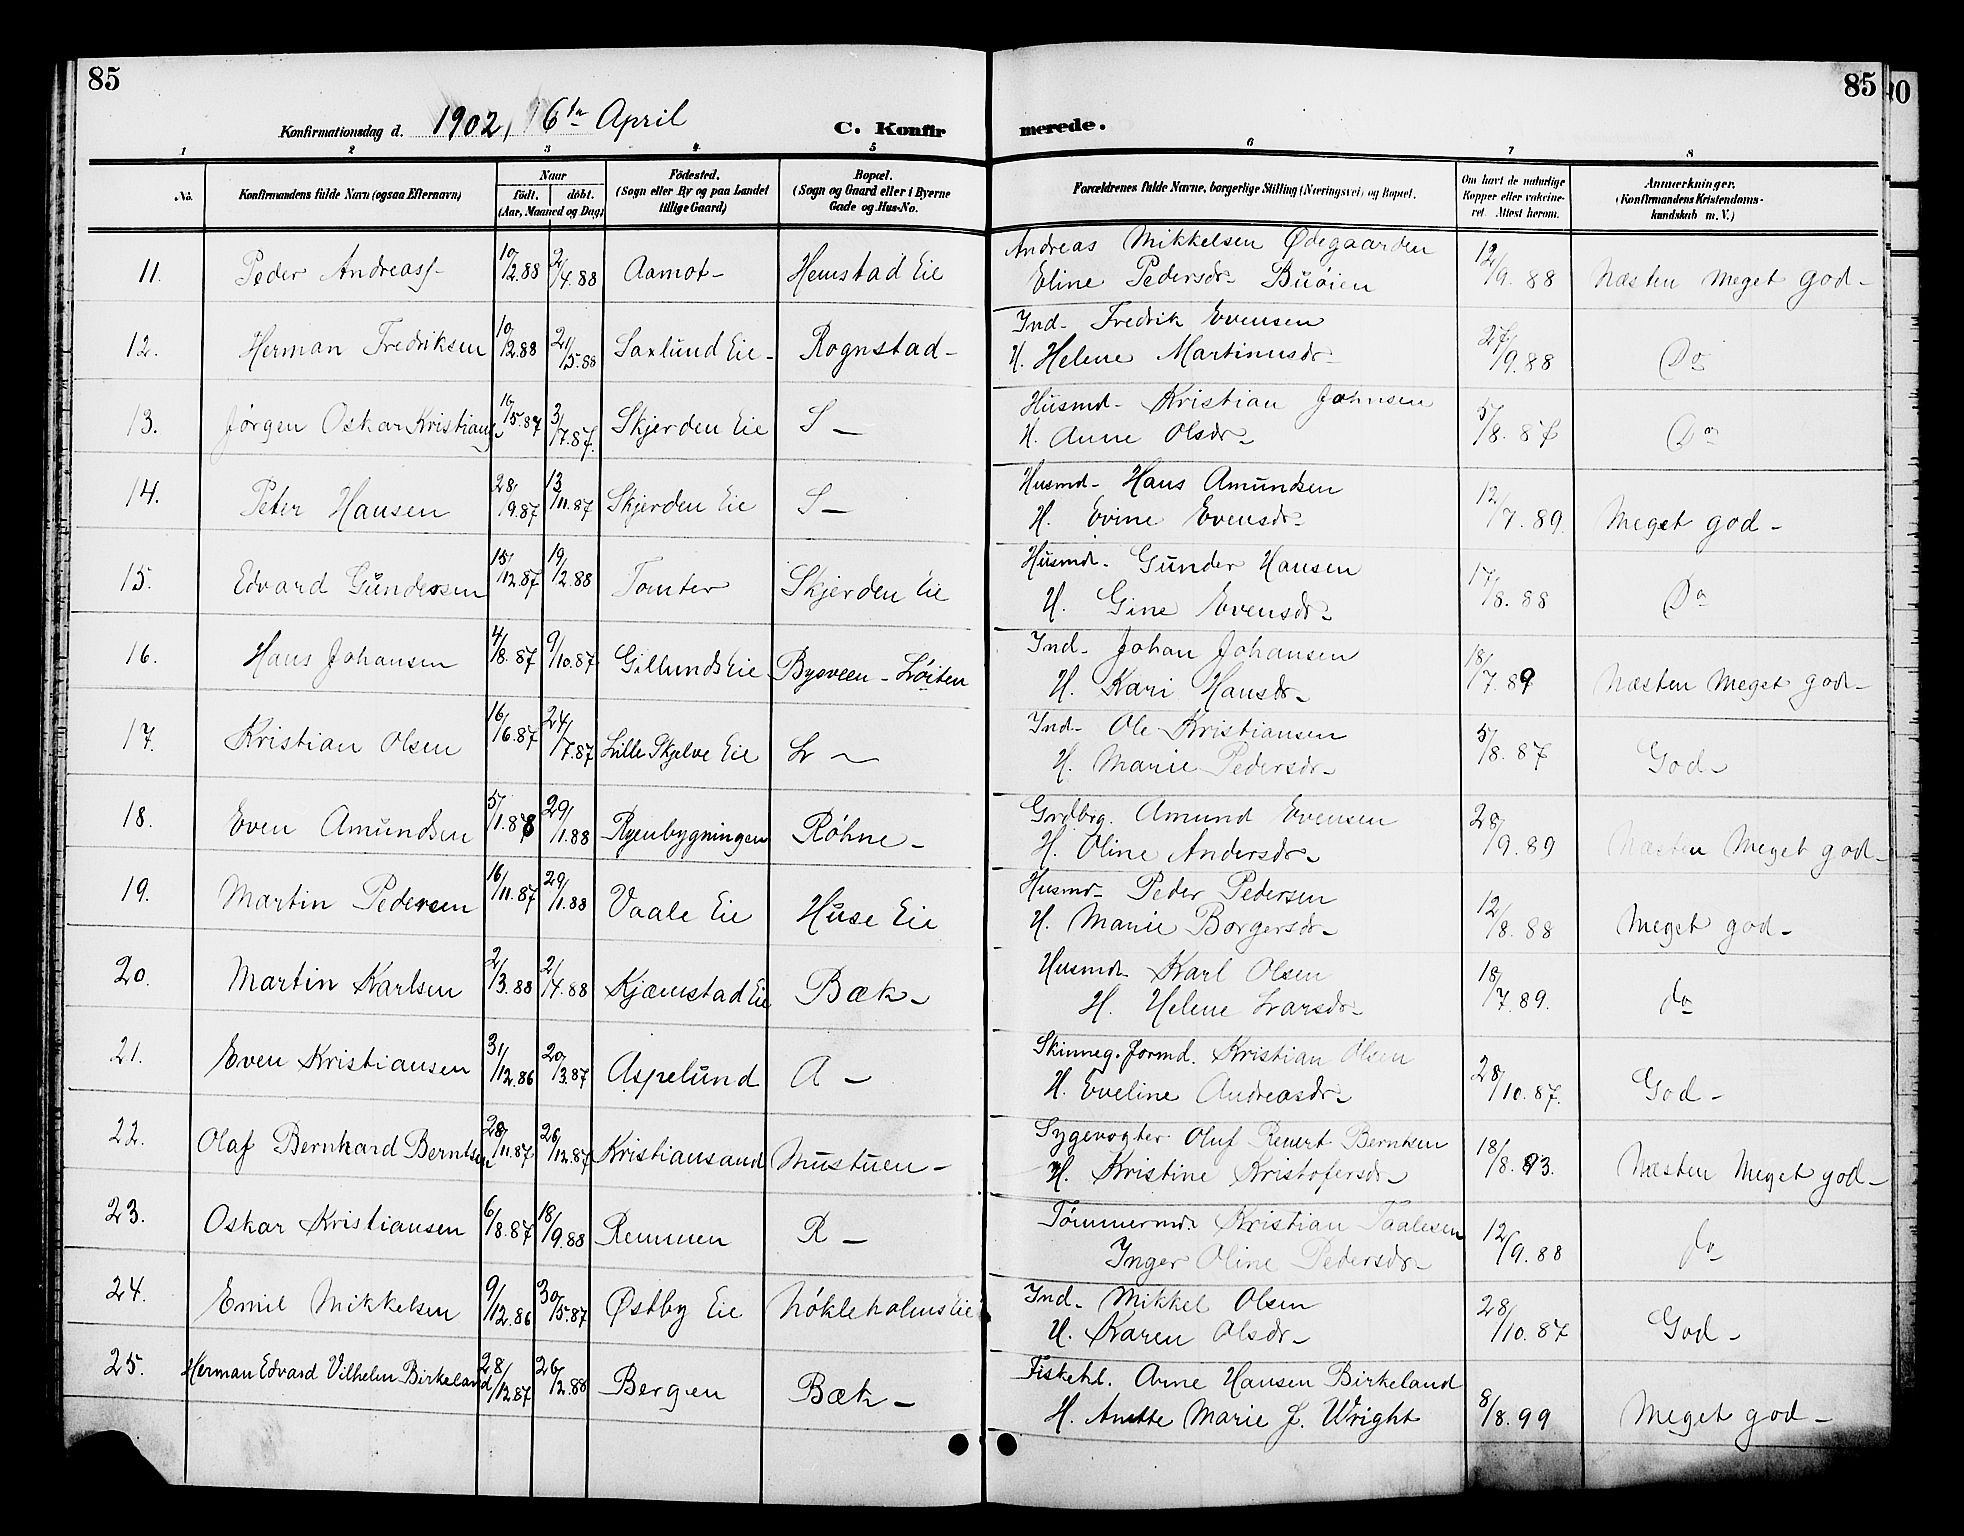 85
85
Konfirmationsdag d. 1902, 6te April
C. Konfirmerede.
1 2 3 4 5 6 7 8
No. Konfirmandens fulde Navn (ogsaa Efternavn) Naar født. døbt. (Aar, Maaned og Dag) Fødested. (Sogn eller By og paa Landet tillige Gaard) Bopæl. (Sogn og Gaard eller i Byerne Gade og Hus-No. Forældrenes fulde Navne, borgerlige Stilling (Næringsvei) og Bopæl. Om havt de naturlige Kopper eller vaccineret. Attest herom. Anmærkninger. (Konfirmandens Kristendomskundskab m. V.)
11. Peder Andreass- 10/2.88 2/4.88 Aamot- Hemstad Eie Andreas Mikkelsen Ødegaarden 12/9. 88 Næsten Meget god-
Eline Pedersdr- Buøien
12. Herman Fredriksen 10/2.88 21/5.88 Saxlund Eie- Rognstad- Ind- Fredrik Evensen 27/9.88 Do
H. Helene Martinusdr-
13. Jørgen Oskar Kristians- 16/5.87 3/7.87. Skjerden Eie S- Husmd- Kristian Johnsen 5/8.87 Do
H. Anne Olsdr-
14. Peter Hansen 28/9.87 13/11.87 Skjerden Eie S- Husmd- Hans Amundsen 12/7.89. Meget god-
H. Evine Evensdr-
15. Edvard Gundersen 15/12.87 19/2.88 Tomter Skjerden Eie Husmd- Gunder Hansen 17/8.88 Do
H. Gine Evensdr-
16. Hans Johansen 4/8.87 9/10.87 Gillunds Eie Bysveen-Løiten Ind- Johan Johansen 18/7.89 Næsten Meget god-
H. Kari Hansdr-
17. Kristian Olsen 16/6.87 24/7.87 Lille Skjelve Eie L- Ind- Ole Kristiansen 5/8.87 God-
H. Marie Pedersdr-
18. Even Amundsen 5/1.88 29/1.88 Ryenbygningen Røhne- Grdbrg. Amund Evensen 28/9.89 Næsten Meget god-
H. Oline Andersdr-
19. Martin Pedersen 16/11.87 29/1.88 Vaale Eie Huse Eie Husmd- Peder Pedersen 12/8.88 Meget god-
H. Marie Borgersdr-
20. Martin Karlsen 2/3.88 2/4.88 Kjæmstad Eie Bæk- Husmd- Karl Olsen 18/7.89. do
H. Helene Larsdr-
21. Even Kristiansen 31/12.86 20/3.87 Aspelund A- Skinneg. formd. Kristian Olsen 28/10.87. God-
H. Eveline Andreasdr-
22. Olaf Bernhard Berntsen 28/11.87 26/12.87 Kristiansand Mustuen- Sygevogter Oluf Berntsen 18/8.93. Næsten Meget god-
H. Kristine Kristofersdr-
23. Oskar Kristiansen 6/8.87 18/9.88 Remmen R- Tømmermd. Kristian Taalesen 12/9.88 do
Inger Oline Pedersdr-
24. Emil Mikkelsen 9/12.86 30/5.87 Østby Eie Nøkleholms Eie Ind- Mikkel Olsen 28/10.87 God-
H. Karen Olsdr-
25. Herman Edvard Vilhelm Birkeland 28/12.87 26/12.88 Bergen Bæk- Fiskehl. Arne Hansen Birkeland 8/8.99 Meget god-
H. Anette Marie J. Wright